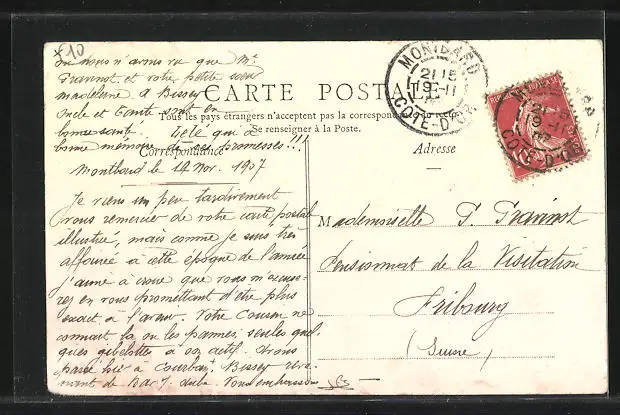 x10
où nous n'avons vu que Mr
Prannot et votre petite soeur
madeleine. a Bissey
Oncle et tante sont en
bonne santé. Tété qui a
bonne mémoire de ses promesses!!!
CARTE POSTALE
Tous les pays étrangers n'acceptent pas la correspondance
Se renseigner à la Poste.
Correspondance
Adresse
MONTBARD
21 15
19-11
07
COTE-D'OR
21 15
19-11
07
COTE-D'OR
Montbard le 19 Nov. 1907
Je viens un peu tardivement
vous remercier de votre carte postale
illustrée, mais comme je suis très
affairée à cette époque de l'année
j'aime à croire que vous m'excuse-
rez en vous promettant d'être plus
exact à l'avenir. Votre Cousin ne
connait là ou les pannes, seules quel-
ques gibelottes à son actif. Avons
passé hier à Courban, Bissey reve-
nant de Bar s. aube. Vous embrassons
Mademoiselle P. Prannot
Pensionnat de la Visitation
Fribourg
(Suisse)